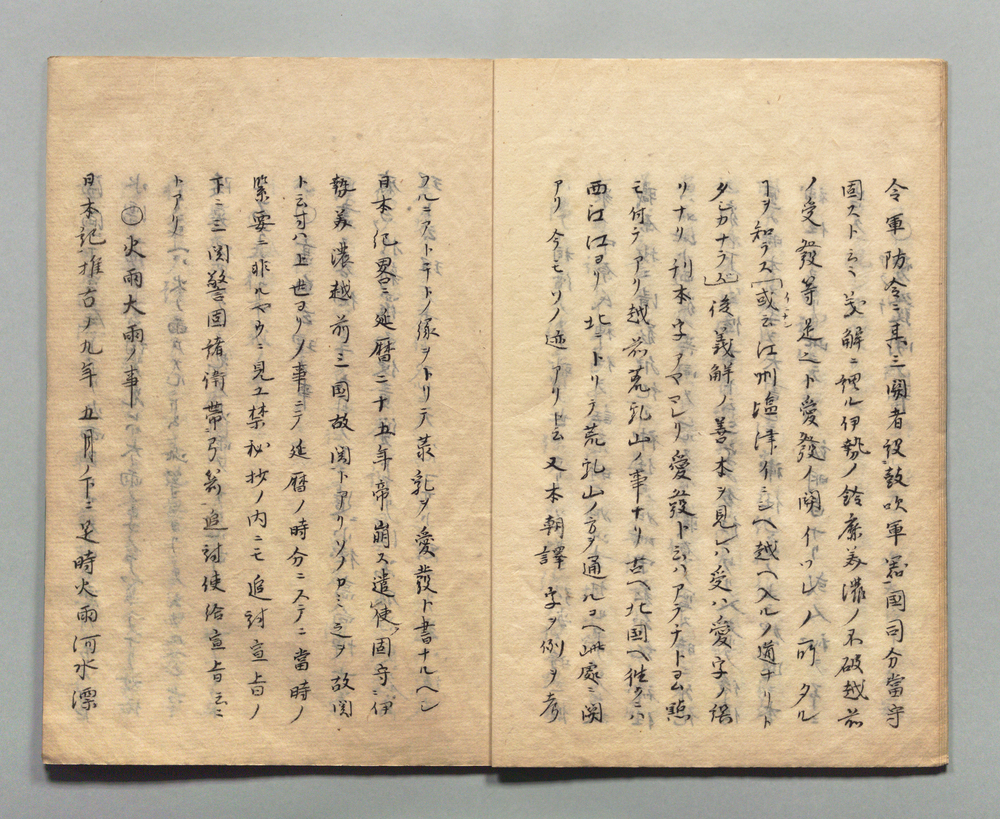 令軍防令ニ其三関者設鼓吹軍器國司分當守
固スト云ニ義解ニ謂ル伊勢ノ鈴鹿美濃ノ不破越前
ノ受發等是也ト愛發ノ関何レノ所タル
ヿヲ知ラス或云江州塩津ヘ越ヘ入ルノ道ナリト
タシカナラス後義解ノ善本ヲ見レハ受ハ愛字ノ誤
リナリ刊本ノ字アヤマレリ愛發ト云ハアラチトヨム點
モ付テアリ越前荒乳山ノ事ナリ昔ヘ北国ヘ往クニハ
西江江ヨリ北ニトリテ荒乳山ノ方ヲ通ルユヘ此處ニ関
アリ今モソノ迹アリト云又本朝譯字ヲ例ヲ考
フルニアトチトノ縁ヲトリテ荒乳ヲ愛發ト書ナルヘシ
日本紀畧ニ延暦二十五年帝崩ス遣使固守伊
勢美濃越前三国故関トアリソノカミ之ヲ故関
ト云寸ハ上世ヨリノ事ニテ延暦ノ時分ニステニ當時ノ
緊要ニ非ルヤウニ見ユ禁秘抄ノ内ニモ追討宣旨ノ
下ニ三関警固諸衛帯弓箭追討使給宣旨云々
トアリ
○火雨大雨ノ事
日本記推古ノ九年五月ノ下ニ是時大雨河水漂